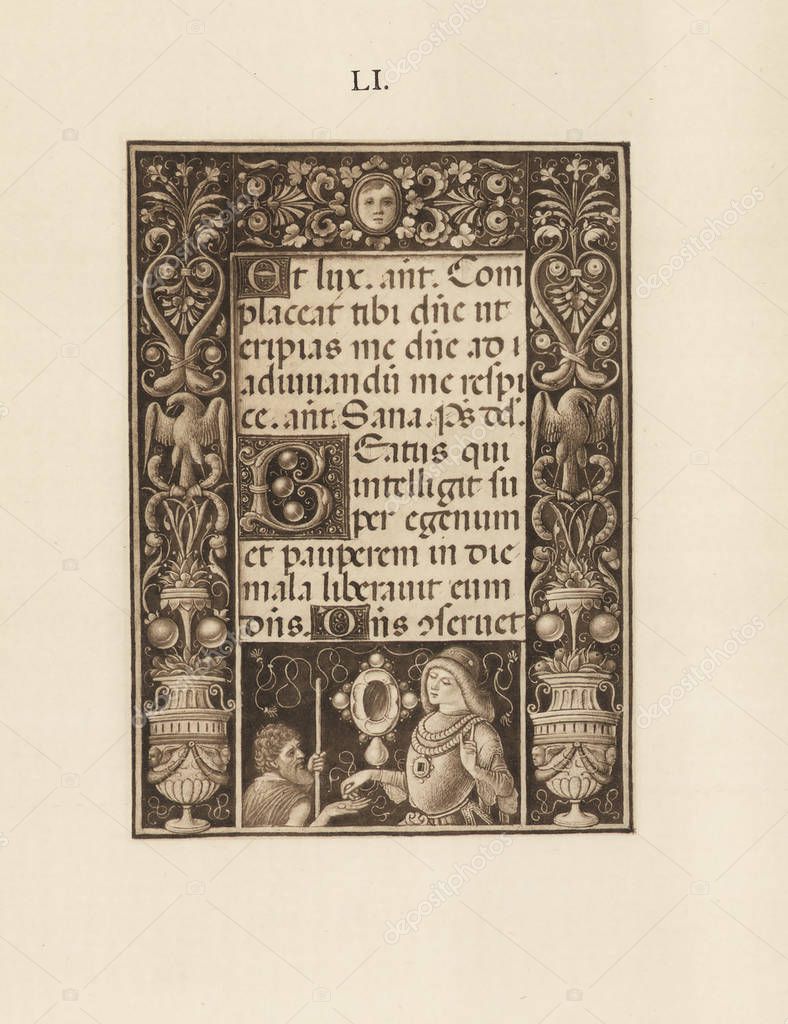 LI.
Et lux. añt. Com
placeat tibi dñe ut
eripias me dñe ad
adiuuandũ me respi
ce. añt. Sana. ps̃ dd̃.
BEatus qui
intelligit su
per egenum
et pauperem in die
mala liberauit eum
dñs. Dñs ɔseruet